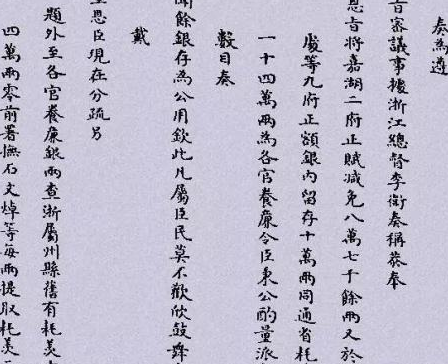 奏為遵
旨審議事據浙江總督李衛奏稱恭奉
恩旨將嘉湖二府正賦減免八萬七千餘兩又於
等九府正額銀內留存十萬兩同通省耗
一十四萬兩為各官養廉令臣秉公酌量派
數目奏
聞餘銀存為公用欽此凡屬臣民莫不歡欣鼓舞
戴
至愚臣現在分疏另
題外至各官養廉銀兩查浙屬州縣舊有耗羨
四萬兩零前署撫石文焯等每兩提取耗羨